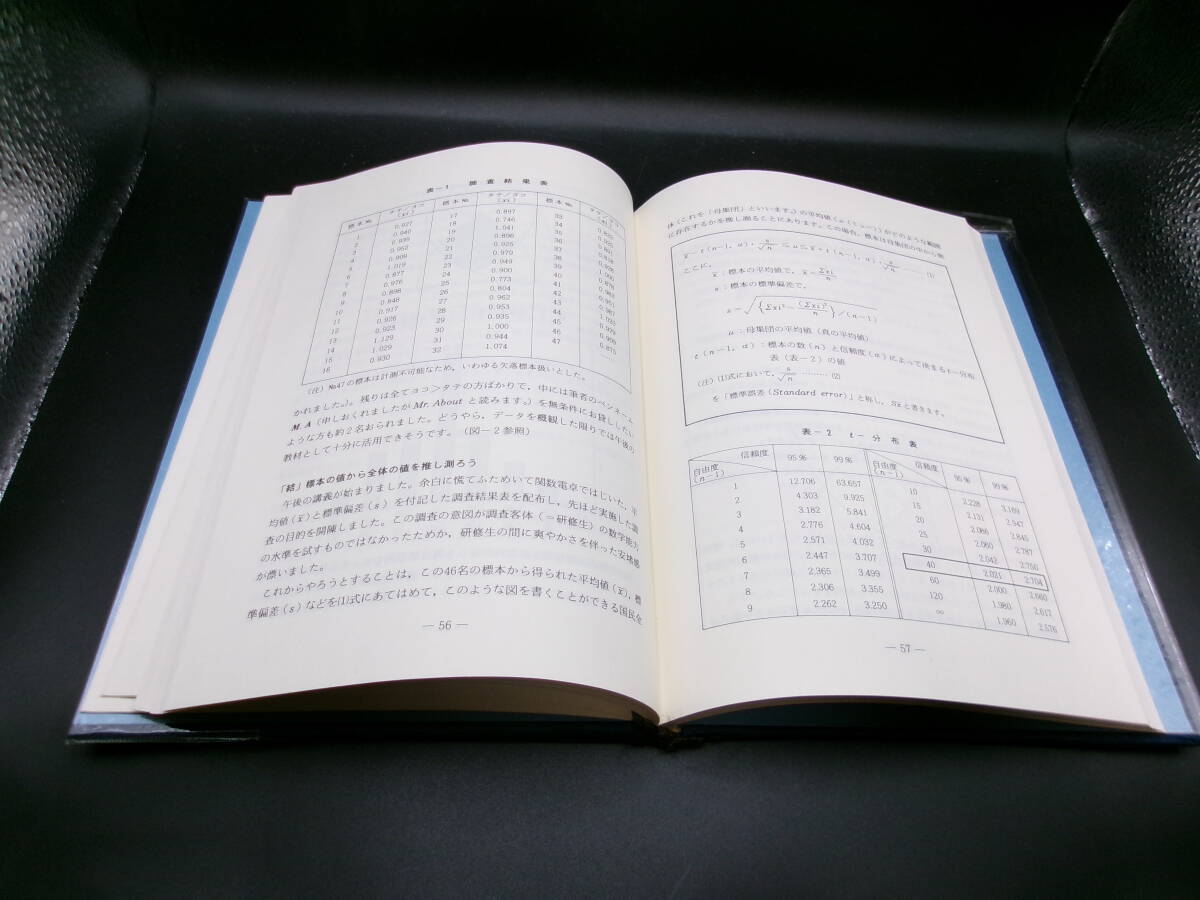 表－1 調査結果表
標本№ タテ／ヨコ (xi) 標本№ タテ／ヨコ (xi) 標本№ タテ／ヨコ (xi)
1 0.927 17 0.897 33
2 0.940 18 0.746 34
3 0.939 19 1.041 35
4 0.952 20 0.896 36
5 0.909 21 0.925 37
6 1.019 22 0.970 38
7 0.877 23 0.925 39 1.000
8 0.976 24 0.949 40
9 0.898 25 0.900 41
10 0.848 26 0.773 42
11 0.917 27 0.804 43
12 0.926 28 0.962 44
13 0.923 29 0.953 45
14 1.129 30 0.935 46
15 1.029 31 1.000 47 ……
16 0.930 32 0.944
1.074
(注) №47の標本は計測不可能なため，いわゆる欠落標本扱いとした。
かれました。）。残りは全てヨコ＞タテの方ばかりで，中には筆者のペンネーム
M.A（申しおくれましたがMr. Aboutと読みます。）を無条件にお貸ししたい
ような方も約2名おられました。どうやら，データを概観した限りでは午後の
教材として十分に活用できそうです。（図－2参照）
「結」標本の値から全体の値を推し測ろう
午後の講義が始まりました。余白に慌てふためいて関数電卓ではじいた，平
均値（x̄）と標準偏差（s）を付記した調査結果表を配布し，先ほど実施した調
査の目的を開陳しました。この調査の意図が調査客体（＝研修生）の数学能力
の水準を試すものではなかったためか，研修生の間に爽やかさを伴った安堵感
が漂いました。
これからやろうとすることは，この46名の標本から得られた平均値（x̄），標
準偏差（s）などを(1)式にあてはめて，このような図を書くことができる国民全
― 56 ―
体（これを「母集団」といいます。）の平均値（μ（ミュー））がどのような範囲
に存在するかを推し測ることにあります。この場合，標本は母集団の中から無
x̄－t（n－1, α）・s/√n ≦μ≦x̄＋t（n－1, α）・s/√n ……… (1)
ここに，
x̄：標本の平均値で，x̄＝Σxi/n
s：標本の標準偏差で，
s＝√{Σxi²－(Σxi)²/n}／(n－1)
μ：母集団の平均値（真の平均値）
t（n－1, α）：標本の数（n）と信頼度（α）によって決まるt－分布
表（表－2）の値
(注) (1)式において，s/√n ……… (2)
を「標準誤差（Standard error）」と称し，Sx̄と書きます。
表－2 t－分布表
自由度 (n－1) 信頼度 95％ 99％ 自由度 (n－1) 信頼度 95％ 99％
1 12.706 63.657 10 2.228 3.169
2 4.303 9.925 15 2.131 2.947
3 3.182 5.841 20 2.086 2.845
4 2.776 4.604 25 2.060 2.787
5 2.571 4.032 30 2.042 2.750
6 2.447 3.707 40 2.021 2.704
7 2.365 3.499 60 2.000 2.660
8 2.306 3.355 120 1.980 2.617
9 2.262 3.250 ∞ 1.960 2.576
― 57 ―